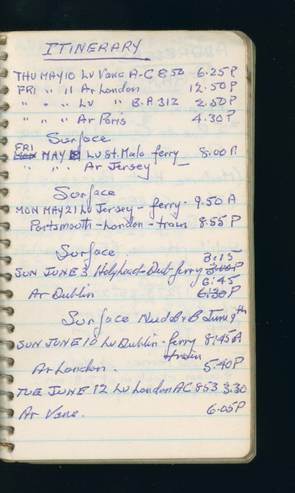 ITINERARY
THU MAY 10 Lv Vanc A-C 850 6.25P
FRI " 11 Ar London 12.50P
" " " Lv " B.A 312 2.50P
" " " Ar Paris 4.30P
Surface
FRI MAY Lv St. Malo ferry 8.00A
" " . Ar Jersey
Surface
MON MAY 21 Lv Jersey - ferry - 9.50 A
Portsmouth - London - train 8.55P
Surface. 3.15
SUN JUNE 3 Holyhead - Dub - ferry
6:45
Ar Dublin 6:30P
Surface June 9th
SUN JUNE 10 Lv Dublin - ferry 8.45A
train
Ar London. 5.40P
TUE JUNE 12 Lv London AC 853 3.30
Ar Vanc. 6.05P